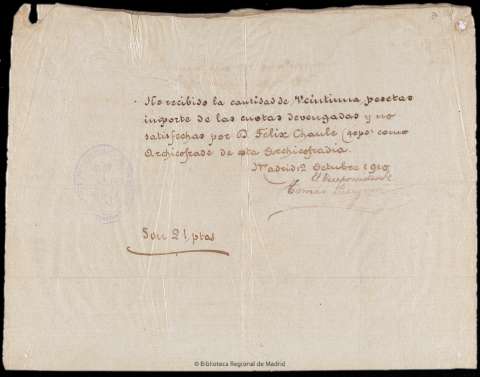 He recibido la cantidad de Veintiuna pesetas
importe de las cuotas devengadas y no
satisfechas por D. Félix Chaule (qepd) como
Archicofrade de esta Archicofradia
Madrid 2 Octubre 1910
Tomas
Son 21 ptas
© Biblioteca Regional de Madrid